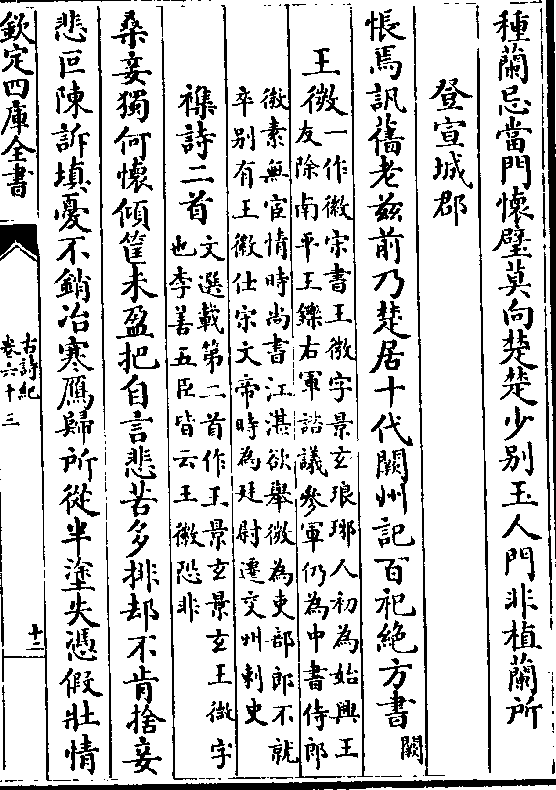 種蘭忌當門懷璧莫向楚楚少别玉人門非植蘭所
登宣城郡
悵焉訊舊老兹前乃楚居十代闕州記百祀絶方書闕
王微一作徽宋書王微字景玄琅琊人初為始興王
友除南平王鑠右軍諮議參軍仍為中書侍郎
微素無宦情時尚書江湛欲舉微為吏部郎不就
卒别有王徽仕宋文帝時為廷尉遷交州刺史
襍詩二首文選載第二首作王景玄景玄王微字
也李善五臣皆云王徽恐非
桑妾獨何懷傾筐未盈把自言悲苦多排却不肯捨妾
悲叵陳訴填憂不銷冶寒鴈歸所從半塗失憑假壯情
欽定四庫全書
古詩紀
卷六十三
十二